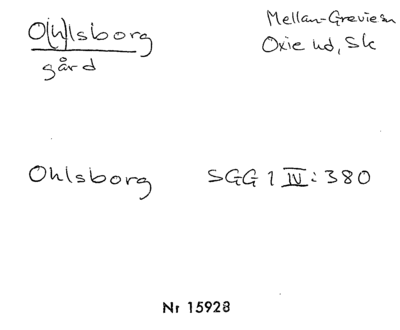 O(h)lsborg
gård
Mellan-Grevie sn
Oxie hd, Sk
Ohlsborg
SGG 1 IV: 380
Nr 15928